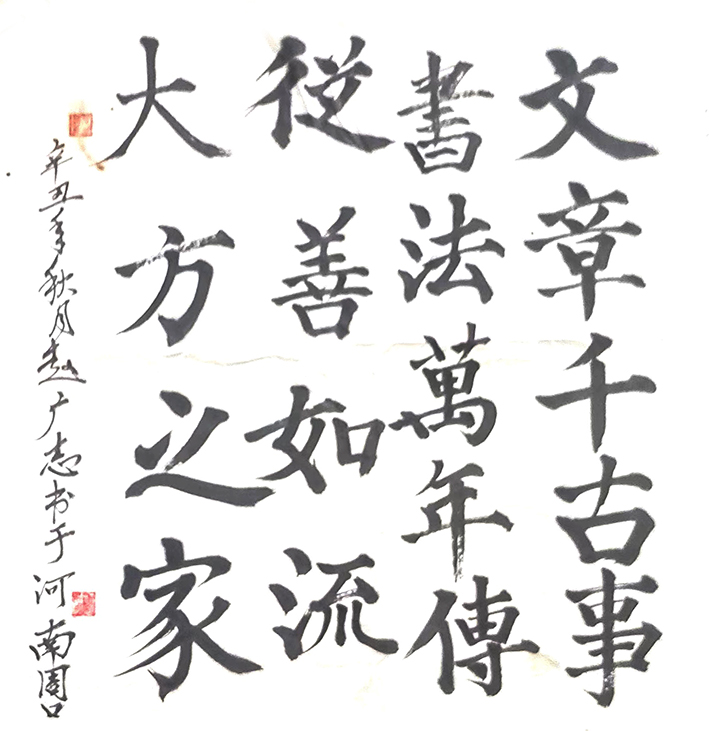 文章千古事
書法萬年傳
從善如流
大方之家
辛丑年秋月赵广志书于河南周口